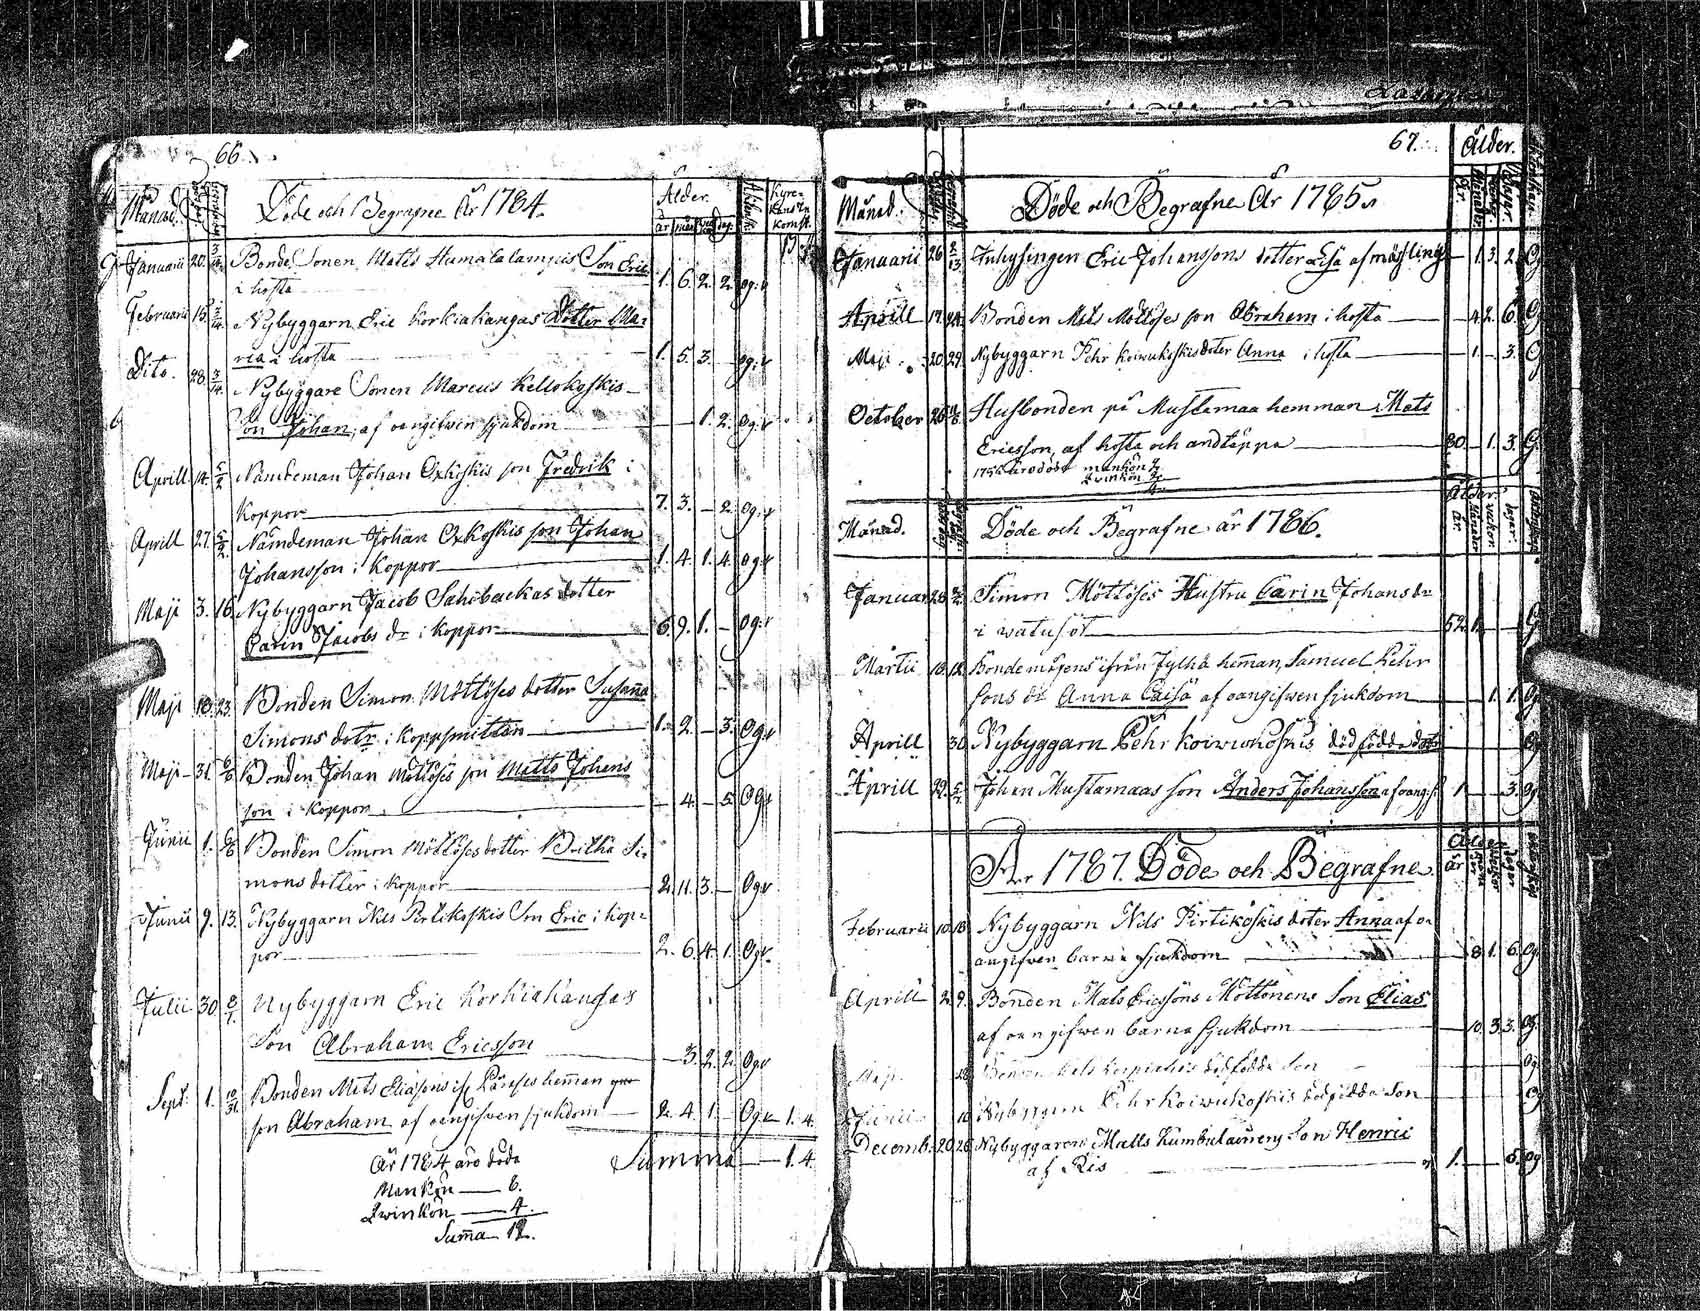 66.
Månad.
Döde och Begrafne År 1784.
Ålder.
år
Kyrc-
kans In
komst.
Januarii 20. Bonde Sonen Mats Humalalampis Son Eric
i hosta 1. 6. 2. 2. og:v
Februarii 15. Nybyggarn Eric Korkiakangas Dotter Ma-
ria i hosta 1. 5. 3. og:v
Dito. 28. 3/14. Nybyggare Sonen Marcus Kellokoskis
Son Johan, af oangifwen sjukdom 1. 2. og:v
Aprill 14. Nämdeman Johan Oxkoskis son Fredrik i
Koppor 7. 3. – 2. og:v
Aprill 27. Nämdeman Johan Oxkoskis son Johan
Johansson i Koppor 1. 4. 1. 4. og:v
Maji 3. 16. Nybyggarn Jacob Sahibackas dotter
Carin Jacobs dr i Koppor 6. 9. 1. – og:v
Maji 18. 23. Bonden Simon Möttöses dotter Susanna
Simons dotr i koppsmittan 1. 2. – 3. Og:v
Maji 31. 6/6 Bonden Johan Möttöses son Matts Johans
son i Koppor – 4. – 5. Og:v
Junii 1. 6/6 Bonden Simon Möttöses dotter Britha Si-
mons dotter i Koppor 2. 11. 3. – Og:v
Junii 9. 13. Nybyggarn Nils Pirtikoskis Son Eric i kop-
por 2. 6. 4. 1. Og:v.
Julii 30. 8/7. Nybyggarn Eric Korkiakangas
Son Abraham Ericsson – 3. 2. 2. Og:v
Sept. 1. 10/31. Bonden Mats Eliasons heman
son Abraham af oangifven sjukdom 2. 4. 1. – Og:v 1. 4.
År 1784 äro döde Summa 1. 4.
Mankön 8.
Qwinkön 4.
Summa 12.
67.
Månad.
Döde och Begrafne År 1785.
Ålder.
Januarii 26 2/13. Inhysingen Eric Johanssons dotter Lisa af mässling – 1. 3. 2. Og
Aprill 17. 24. Bonden Mats Möttöses son Abraham i hosta – 4. 2. 6. Og
Maji 20. 29. Nybyggarn Pehr Koiwukoskis doter Anna i hosta – 1. – 3. Og
October 26 Husbonden på Mustamaa hemman Mats
Ericsson, af hosta och andtäppa 80. – 1. 3. Og
1785 äro döde mankön 2
Qvinkön 2
4.
Månad.
Döde och Begrafne år 1786.
Ålder.
Januar 26 Simon Möttöses Hustru Carin Johans dr
i watusot 52. 1.
Martii 10. 12. Bonde mågens ifrån Jylhä heman, Samuel Pehr
sons dr Anna Caisa af oangifwen sjukdom – – 1. 1. Og
Aprill 30. Nybyggarn Pehr Koiwukoskis dödfödde dotr Og
Aprill 29. 5/7. Johan Mustamaas son Anders Johansson af oangif. 1 – – 3. Og
År 1787. Döde och Begrafne.
Ålder
År
Februarii 10. 18 Nybyggarn Nils Pirtikoskis doter Anna af o-
angifven barna sjukdom – 8. 1. 6. Og
Aprill 2. 9. Bonden Mats Ericsons Möttönens Son Elias
af oangifwen barna sjukdom – 10. 3. 3. Og.
Maji. dödfödde Son Og
Junii 10 Nybyggarn Pehr Koiwukoskis dödfödda Son Og
Decemb. 20. 26 Nybyggaren Matts Kumbulainens Son Henric
af Ris 1. – – 5. Og